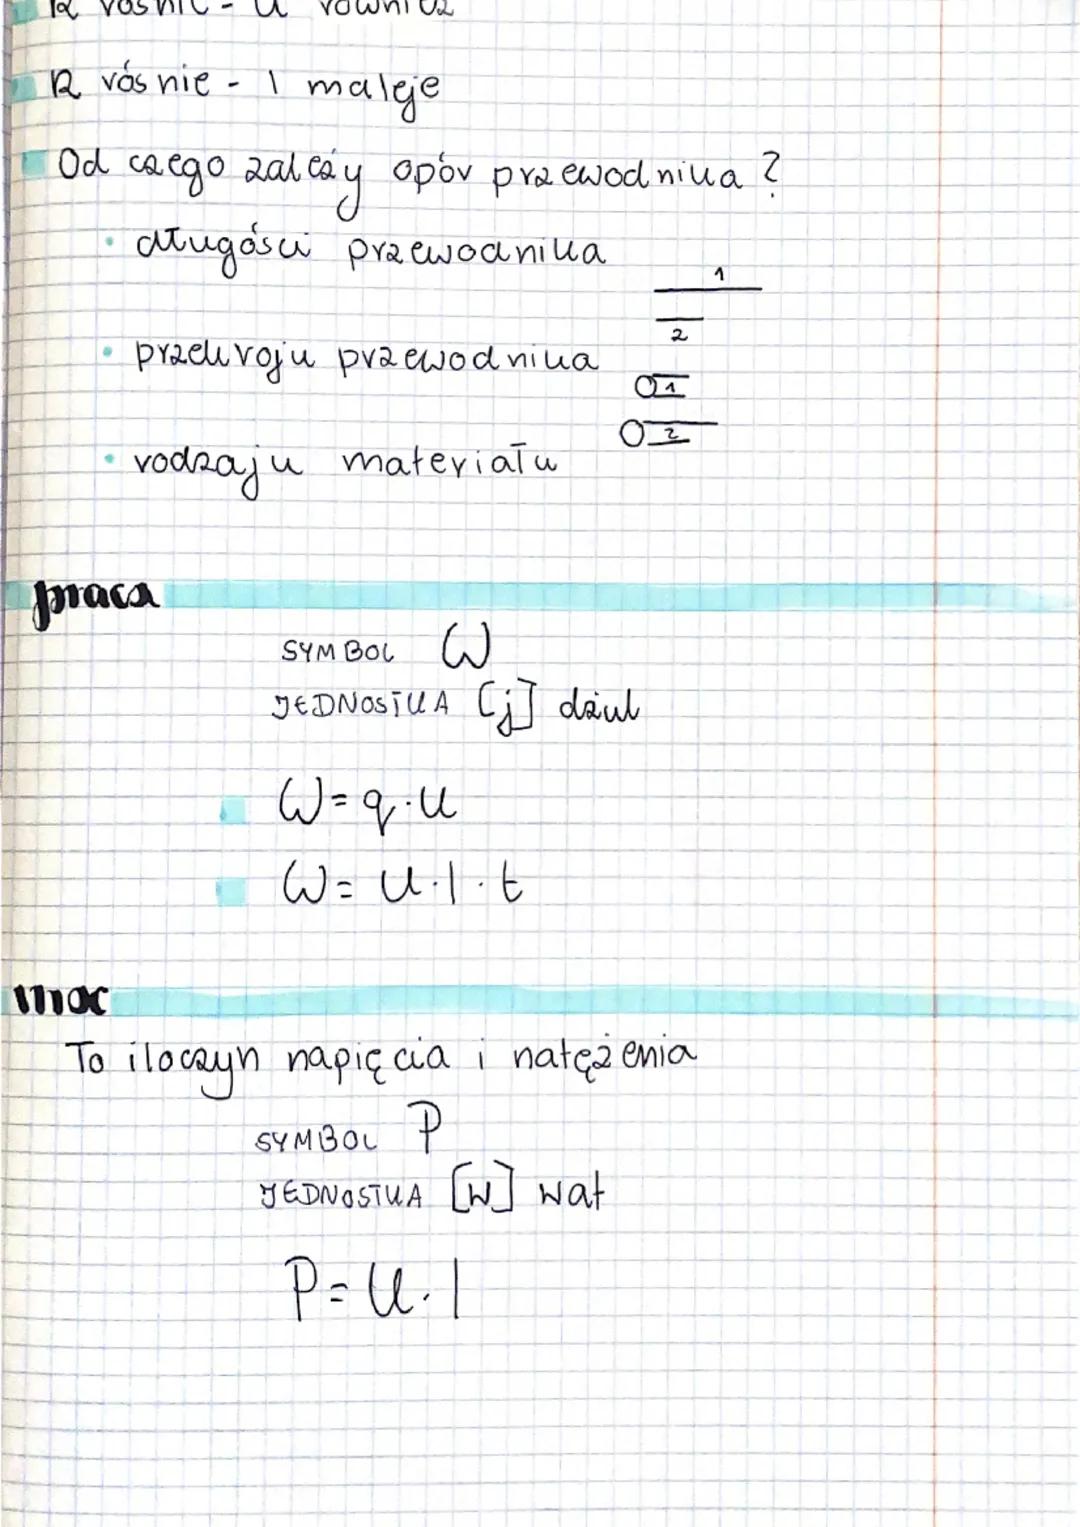 R rośnie - U również
R rośnie - I maleje
Od czego zależy opór przewodnika?
• długości przewodnika
1
2
• przekroju przewodnika
1
2
• rodzaju materiału
praca
SYMBOL W
JEDNOSTKA [j] dżul
W = q · U
W = U · I · t
moc
To iloczyn napięcia i natężenia
SYMBOL P
JEDNOSTKA [W] wat
P = U · I